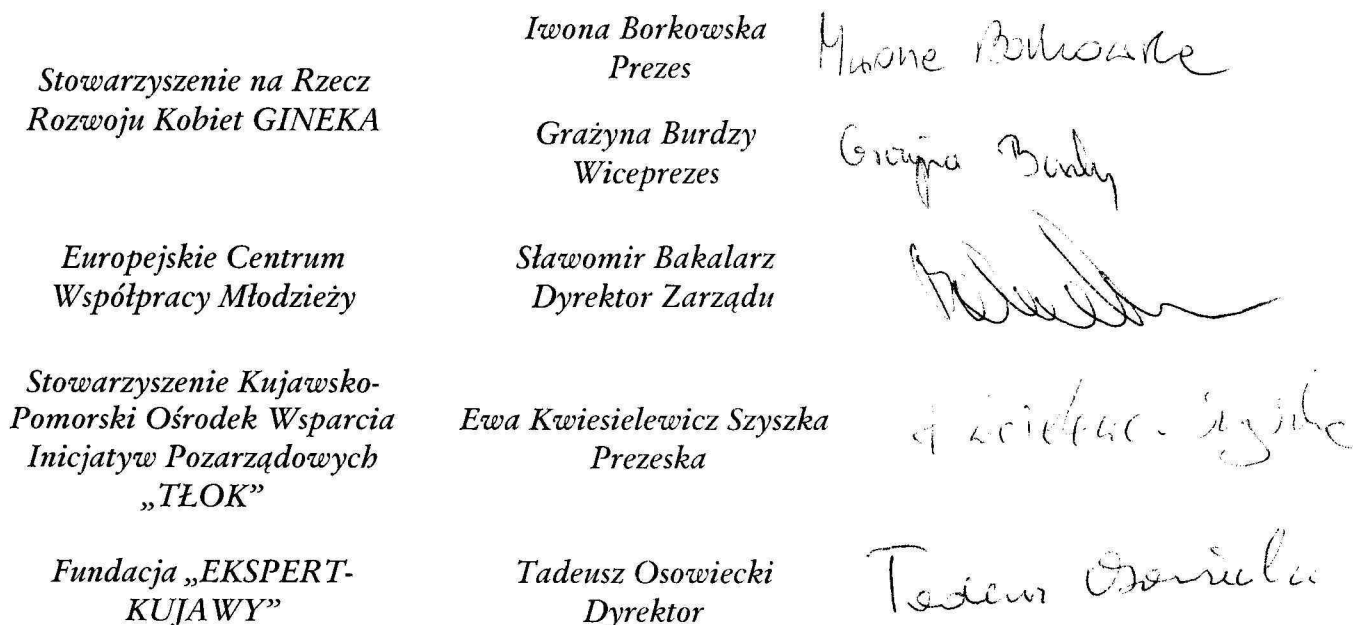 Stowarzyszenie na Rzecz
Rozwoju Kobiet GINEKA
Iwona Borkowska
Prezes
Iwona Borkowska
Grażyna Burdzy
Wiceprezes
Grażyna Burdzy
Europejskie Centrum
Współpracy Młodzieży
Sławomir Bakalarz
Dyrektor Zarządu
Stowarzyszenie Kujawsko-
Pomorski Ośrodek Wsparcia
Inicjatyw Pozarządowych
„TŁOK”
Ewa Kwiesielewicz Szyszka
Prezeska
Fundacja „EKSPERT-
KUJAWY”
Tadeusz Osowiecki
Dyrektor
Tadeusz Osowiecki